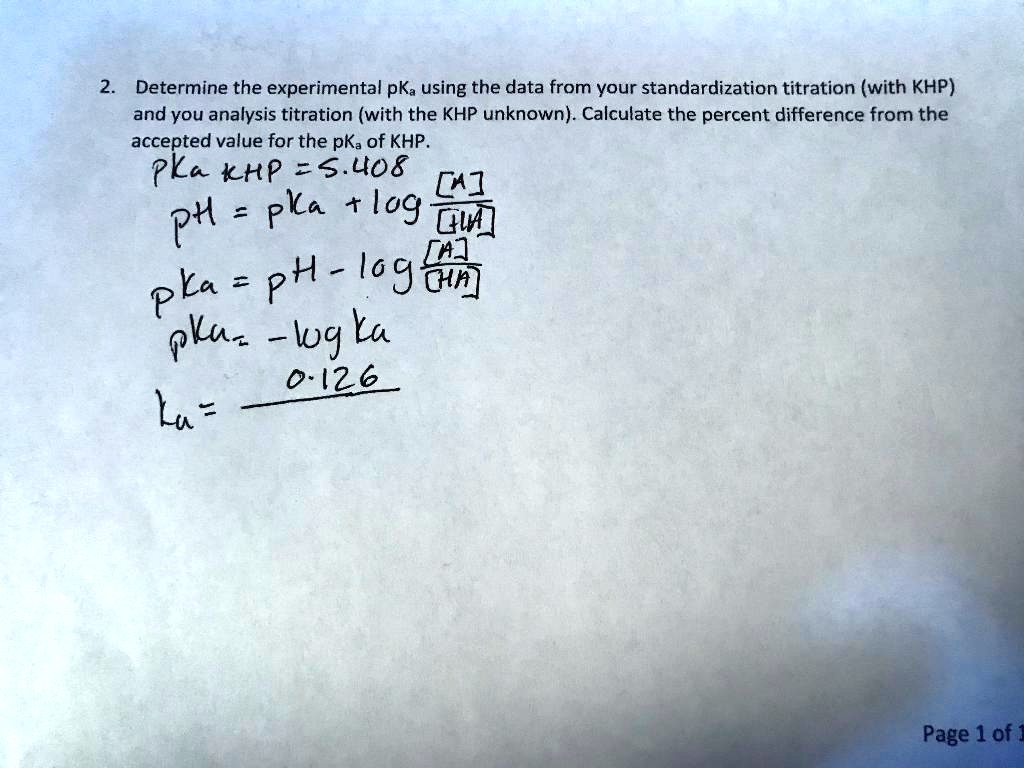 2. Determine the experimental pKₐ using the data from your standardization titration (with KHP)
and you analysis titration (with the KHP unknown). Calculate the percent difference from the
accepted value for the pKₐ of KHP.
pKa KHP = 5.408
pH = pKa + log [A]/[HA]
pKa = pH - log [A]/[HA]
pKa = - log Ka
0.126
Ka =
Page 1 of 1